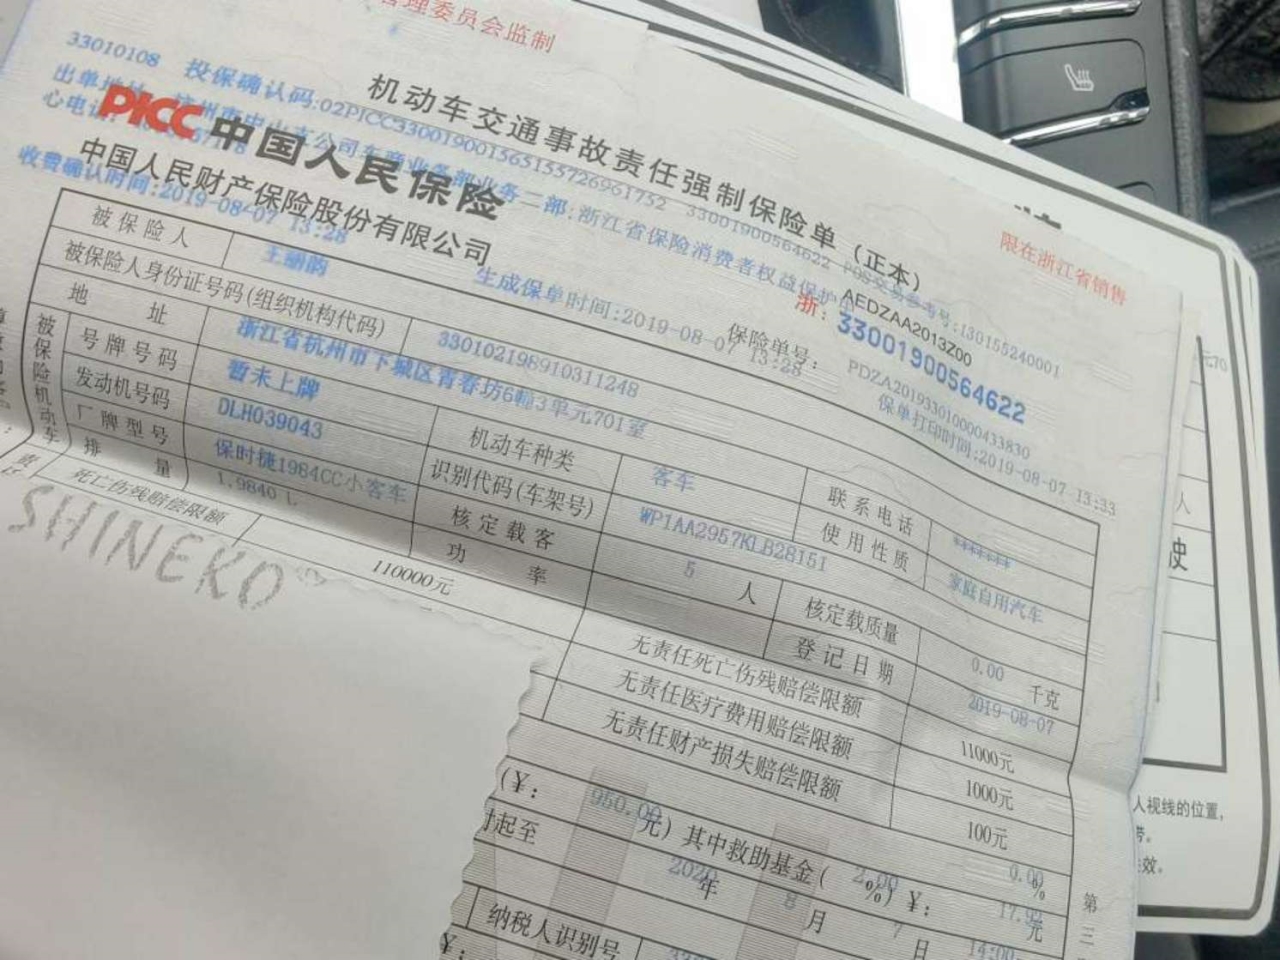 管理委员会监制
33010108 投保确认码:02PICC330019001565155726961752 3300190056​4622 POS交易参考号:130155240001
机动车交通事故责任强制保险单(正本)
限在浙江省销售
PICC中国人民保险
AEDZAA2013Z00
浙: 33001900564622
中国人民财产保险股份有限公司
收费确认时间:2019-08-07 13:28
生成保单时间:2019-08-07 13:28
保险单号: PDZA201933010000433830
保单打印时间:2019-08-07 13:33
被保险人 王丽韵
被保险人身份证号码(组织机构代码) 330102198910311248
地址 浙江省杭州市下城区青春坊6幢3单元701室
联系电话 *******
被保险机动车
号牌号码 暂未上牌 机动车种类 客车 使用性质 家庭自用汽车
发动机号码 DLH039043 识别代码(车架号) WP1AA2957KLB28151
厂牌型号 保时捷1984CC小客车 核定载客 5 人 核定载质量 0.00 千克
排量 1.9840 L 功率 登记日期 2019-08-07
死亡伤残赔偿限额 110000元 无责任死亡伤残赔偿限额 11000元
无责任医疗费用赔偿限额 1000元
无责任财产损失赔偿限额 100元
0.00 %
SHINEKO
(¥: 950.00 元) 其中救助基金( 2.00 %) ¥: 17.92 元
时起至 2020 年 8 月 7 日 14:00
纳税人识别号
¥:
第三
人视线的位置,
效。